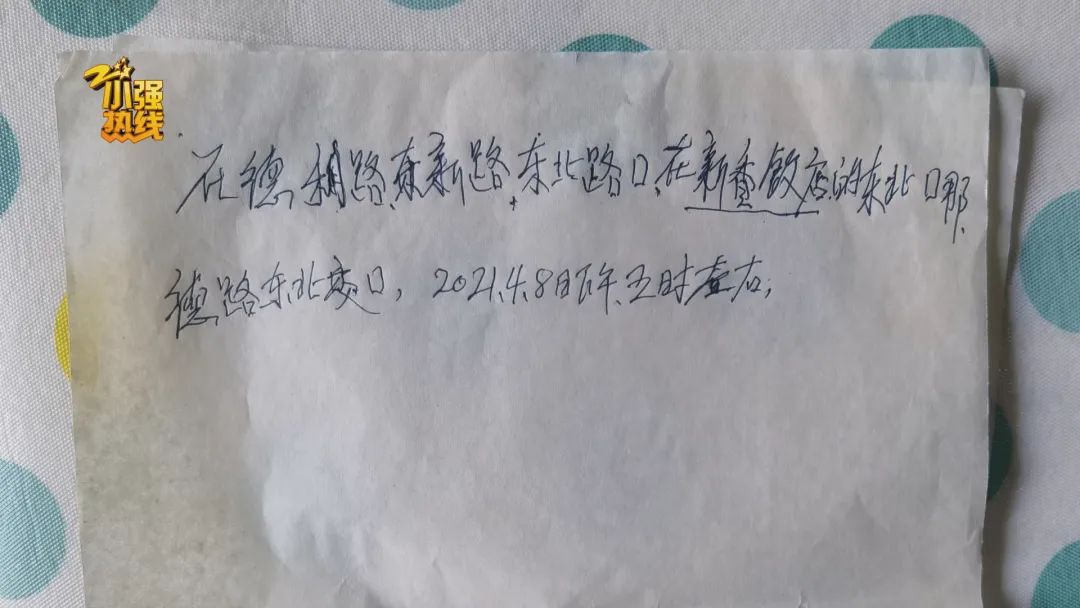 小强
热线
在德胜路东新路东北路口、在新香饭店的东北口那、
德路东北交口，2021.4.8日下午、五时左右；